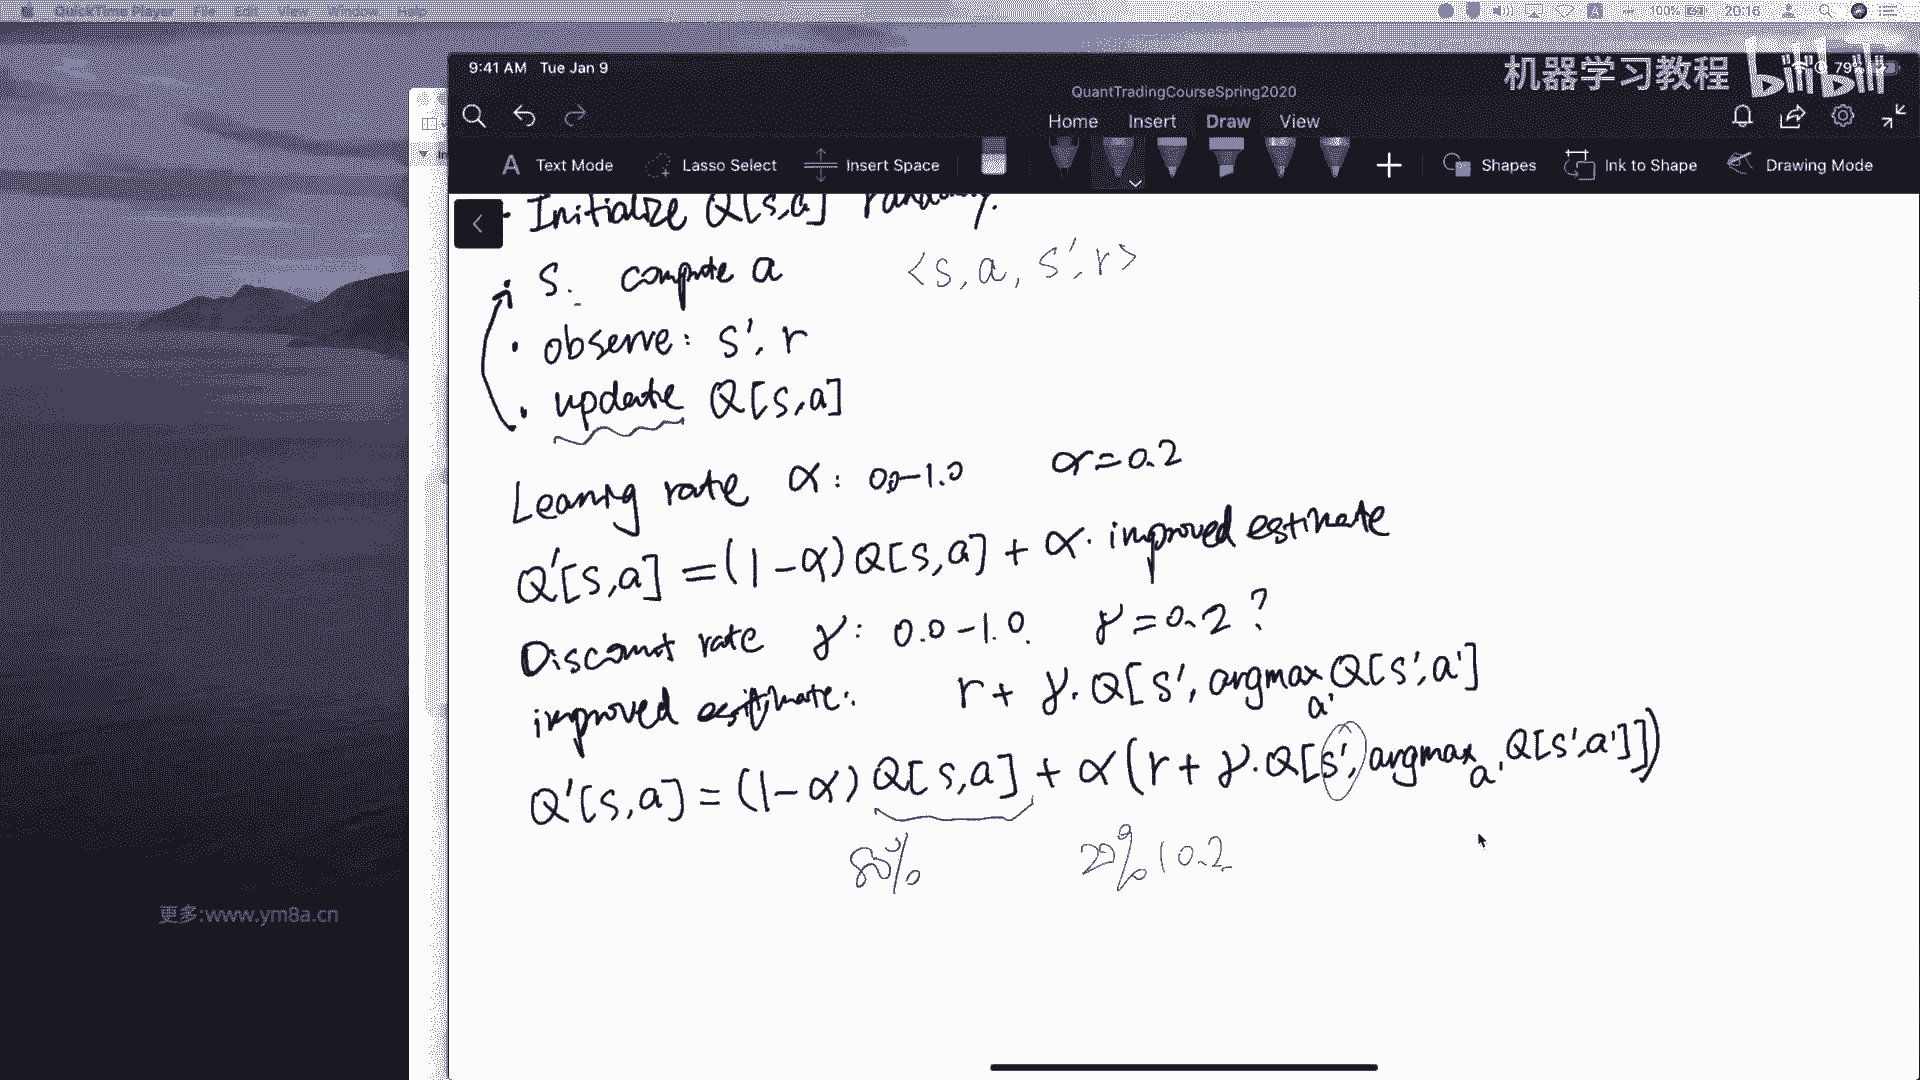 QuickTime Player File Edit View Window Help 100% 20:16
9:41 AM Tue Jan 9 79%
机器学习教程 bilibili
QuantTradingCourseSpring2020
Home Insert Draw View
Text Mode Lasso Select Insert Space Shapes Ink to Shape Drawing Mode
· Initialize Q[s,a] randomly.
· S. compute a <s, a, s', r>
· observe: s', r
· update Q[s,a]
Learning rate α: 0.0-1.0 α=0.2
Q'[s,a] = (1-α)Q[s,a] + α· improved estimate
Discount rate γ: 0.0-1.0. γ=0.2?
improved estimate: r + γ·Q[s', argmax_a' Q[s',a']
Q'[s,a] = (1-α) Q[s,a] + α(r + γ·Q[s', argmax_a' Q[s',a']])
80% 20% 0.2
更多:www.ym8a.cn